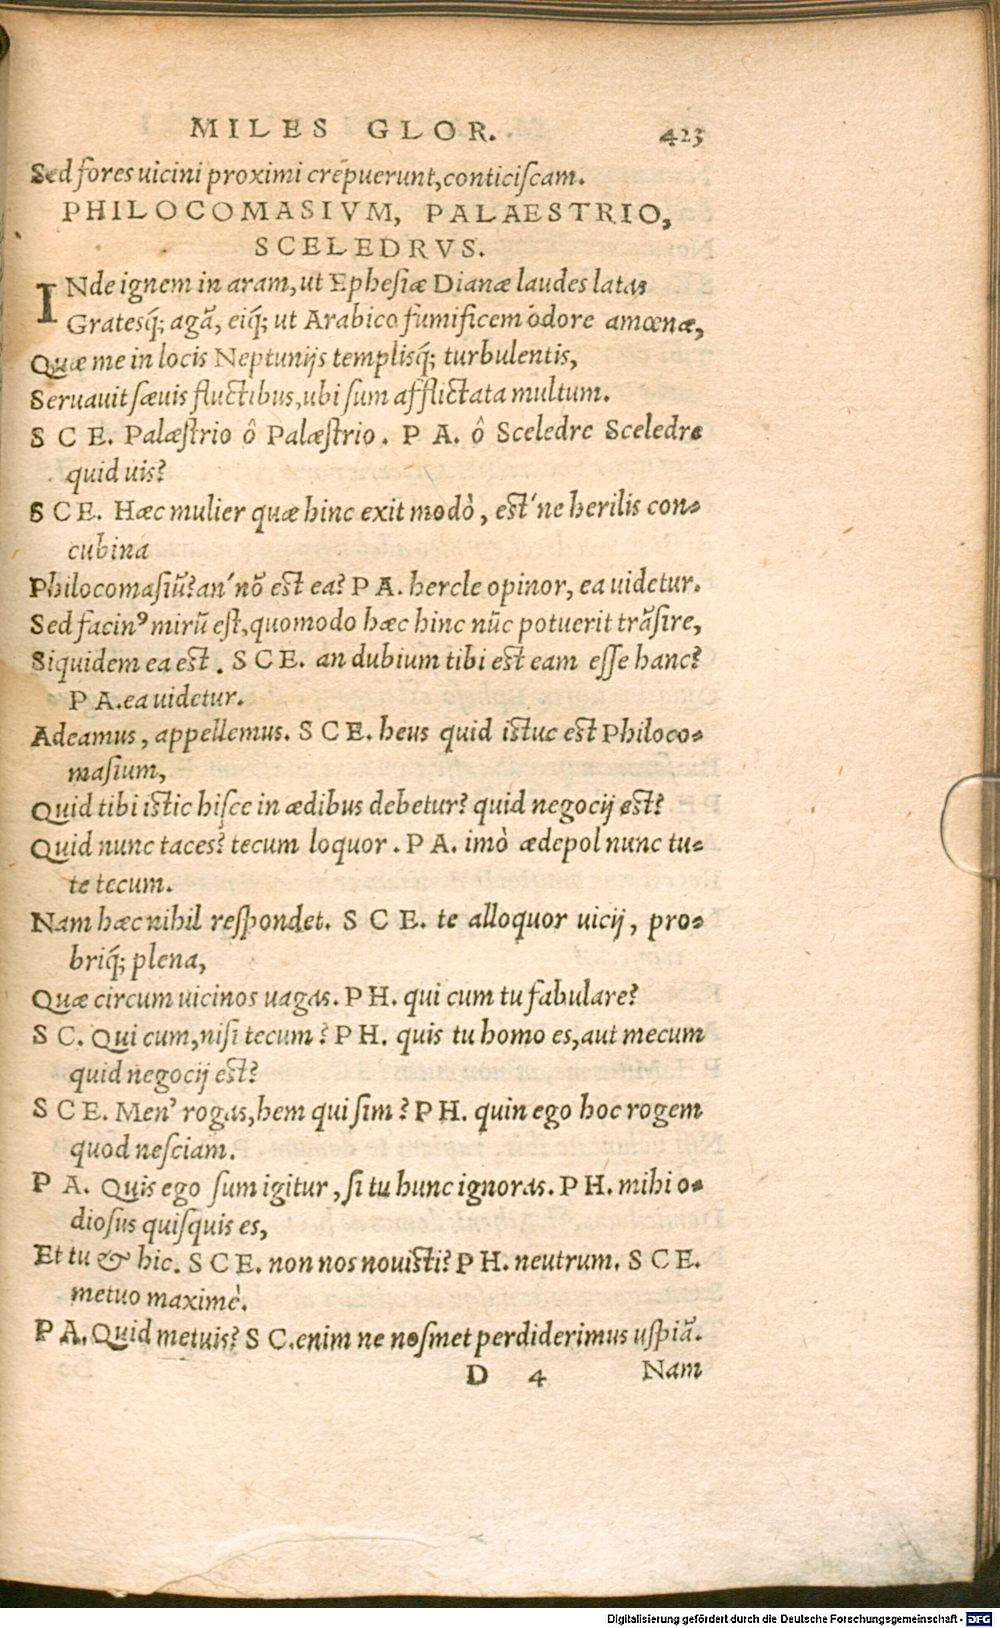 MILES GLOR. 423
Sed fores uicini proximi crepuerunt, conticiscam.
PHILOCOMASIVM, PALAESTRIO,
SCELEDRVS.
INde ignem in aram, ut Ephesiæ Dianæ laudes latas
Gratesq́; agā, eiq́; ut Arabico fumificem odore amœnæ,
Quæ me in locis Neptunijs templisq́; turbulentis,
Seruauit sæuis fluctibus, ubi sum afflictata multum.
SCE. Palæstrio ô Palæstrio. PA. ô Sceledre Sceledre
quid uis?
SCE. Hæc mulier quæ hinc exit modò, est' ne herilis con-
cubina
Philocomasiū? an' nō est ea? PA. hercle opinor, ea uidetur.
Sed facinꝰ mirū est, quomodo hæc hinc nūc potuerit trāsire,
Siquidem ea est. SCE. an dubium tibi est eam esse hanc?
PA. ea uidetur.
Adeamus, appellemus. SCE. heus quid istuc est Philoco-
masium,
Quid tibi istic hisce in ædibus debetur? quid negocij est?
Quid nunc taces? tecum loquor. PA. imò ædepol nunc tu-
te tecum.
Nam hæc nihil respondet. SCE. te alloquor uicij, pro-
briq́; plena,
Quæ circum uicinos uagas. PH. qui cum tu fabulare?
SC. Qui cum, nisi tecum? PH. quis tu homo es, aut mecum
quid negocij est?
SCE. Men' rogas, hem qui sim? PH. quin ego hoc rogem
quod nesciam.
PA. Quis ego sum igitur, si tu hunc ignoras. PH. mihi o-
diosus quisquis es,
Et tu & hic. SCE. non nos nouisti? PH. neutrum. SCE.
metuo maximè.
PA. Quid metuis? SC. enim ne nosmet perdiderimus uspiā.
D 4 Nam
Digitalisierung gefördert durch die Deutsche Forschungsgemeinschaft - DFG